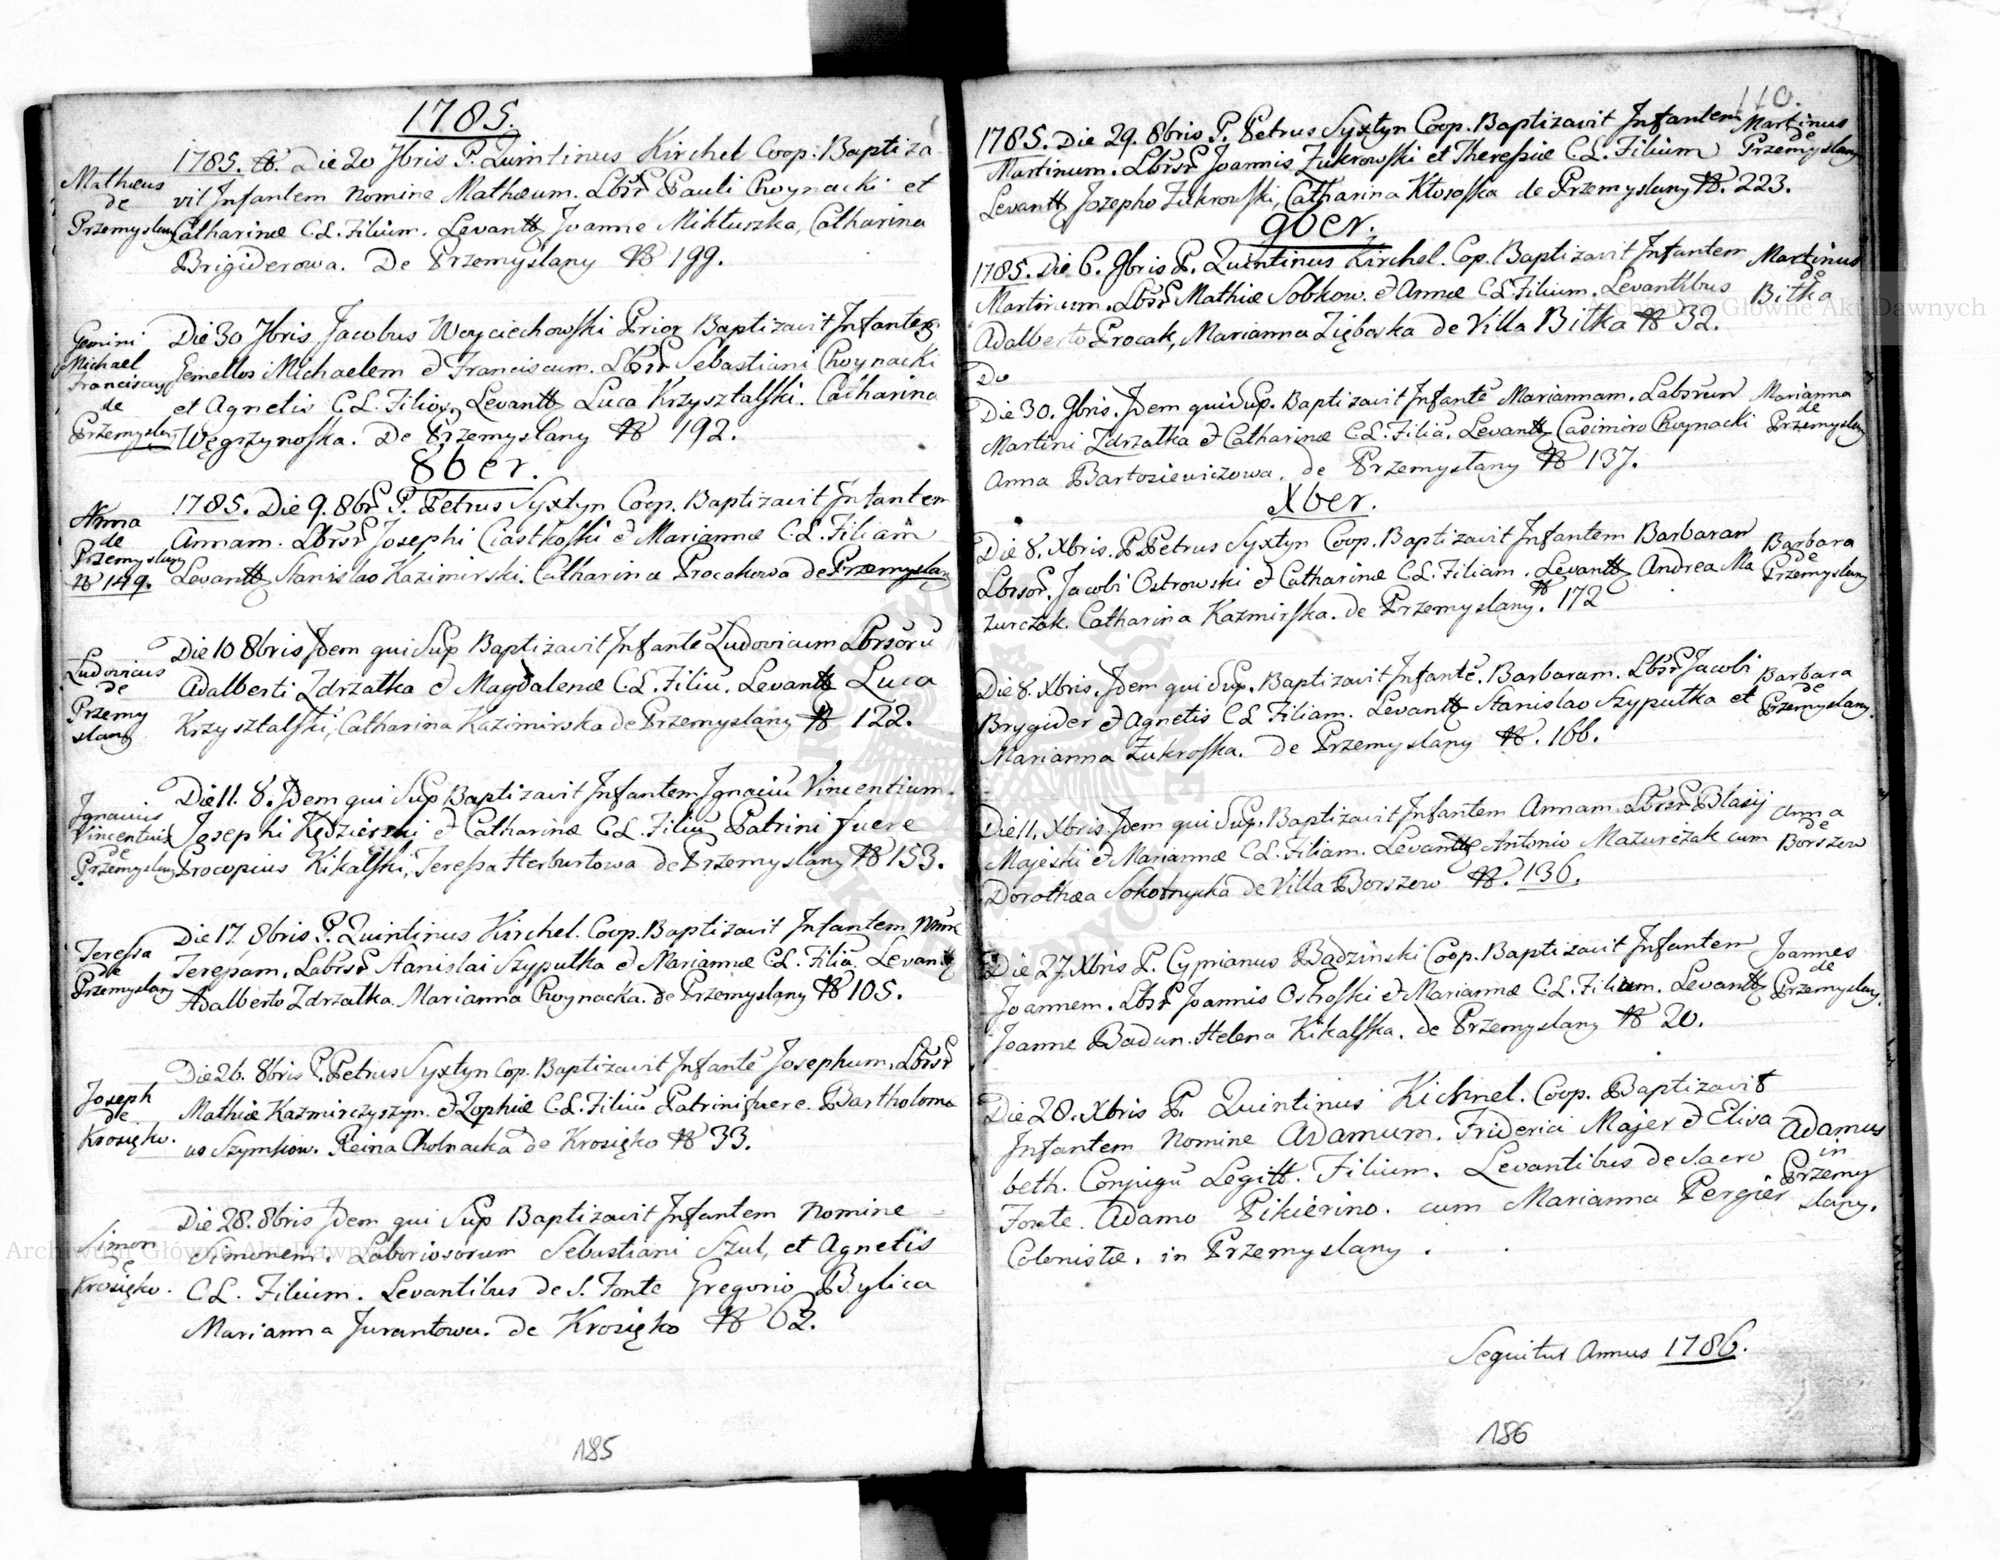 1785.
Mathæus
de
Przemyslany
1785. № Die 20 7bris P. Quintinus Kirchel Coop: Baptiza
vit Infantem nomine Mathæum. Lbrsr Pauli Choynacki et
Catharinæ C.L. Filium. Levantt Joanne Mikłuszka, Catharina
Brigiderowa. De Przemyslany № 199.
Gemini
Michael
Franciscus
de
Przemyslany
Die 30 7bris Jacobus Woyciechowski Prior Baptizavit Infantes
Gemellos Michaelem & Franciscum. Lbrsr Sebastiani Choynacki
et Agnetis C.L. Filios, Levantt Luca Krzysztalski. Catharina
Węgrzynoska. De Przemyslany № 192.
8ber.
Anna
de
Przemyslany
№ 149.
1785. Die 9. 8br P. Petrus Syxtyn Coop. Baptizavit Infantem
Annam. Lbrsr Josephi Ciastkoski & Mariannæ C.L. Filiam
Levantt Stanislao Kazimirski. Catharina Procakowa de Przemyslany
Ludovicus
de
Przemy
slany
Die 10 8bris Idem qui Sup Baptizavit Infante Ludovicum Lbrsorū
Adalberti Zdrzatka & Magdalenæ C.L. Filiū. Levantt Luca
Krzysztalski, Catharina Kazimirska de Przemyslany № 122.
Ignacius
Vincentius
de
Przemyslany
Die 11. 8. Idem qui Sup Baptizavit Infantem Ignaciū Vincentium.
Josephi Kędzierski & Catharinæ C.L. Filiū Patrini fuere
Procopius Kikalski, Teressa Herburtowa de Przemyslany № 153.
Teressa
de
Przemyslany
Die 17. 8bris P. Quintinus Kirchel. Coop. Baptizavit Infantem
Teressam. Labrsr Stanislai Szyputka & Mariannæ C.L. Filiā. Levantt
Adalberto Zdrzatka Marianna Choynacka. de Przemyslany № 105.
Joseph
de
Krosięko.
Die 26. 8bris P. Petrus Syxtyn Cop. Baptizavit Infantē Josephum. Lbrsr
Mathiæ Kazmirczyszyn. & Zophiæ C.L. Filiū Patrini fuere. Bartholomæ
us Szymkow. Reina Cholnacka de Krosięko № 33.
Simon
de
Krosięko.
Die 28. 8bris Idem qui Sup Baptizavit Infantem nomine
Simonem. Laboriosorum Sebastiani Szul, et Agnetis
C.L. Filium. Levantibus de S. Fonte Gregorio Bylica
Marianna Jurantowa. de Krosięko № 62.
185
110.
1785. Die 29. 8bris P. Petrus Syxtyn Coop. Baptizavit Infantem
Martinum. Lbrsr Joannis Zukrowski et Theressiæ C.L. Filium
Levantt Jozepho Zukrowski, Catharina Kłososka de Przemyslany № 223.
Martinus
de
Przemyslany
9ber.
1785. Die 6. 9bris P. Quintinus Kirchel. Cop. Baptizavit Infantem
Martinum. Lbrsr Mathiæ Sobkow. & Annæ C.L. Filium. Levantibus
Adalberto Procak, Marianna Ziębaska de Villa Bitka № 32.
Martinus
de
Bitka
Do
Die 30. 9bris. Idem qui Sup. Baptizavit Infantē Mariannam. Labsrum
Martini Zdrzatka & Catharinæ C.L. Filiā. Levantt Casimiro Choynacki
Anna Bartosiewiczowa. de Przemyslany № 137.
Marianna
de
Przemyslany
Xber.
Die 8. Xbris. P. Petrus Syxtyn Coop. Baptizavit Infantem Barbaram
Lbrsor. Jacobi Ostrowski & Catharinæ C.L. Filiam. Levantt Andrea Ma
zurczak. Catharina Kazmirska. de Przemyslany. № 172
Barbara
de
Przemyslany
Die 8. Xbris. Idem qui Sup. Baptizavit Infantē. Barbaram. Lbrsr Jacobi
Brygider & Agnetis C.L. Filiam. Levantt Stanislao Szyputka et
Marianna Zukroska. de Przemyslany №. 166.
Barbara
de
Przemyslany.
Die 11. Xbris. Idem qui Sup. Baptizavit Infantem Annam. Lbrsr Blasij
Majeski & Mariannæ C.L. Filiam. Levantt Antonio Mazurczak cum
Dorothæa Sokołnycka de Villa Borszow №. 136.
Anna
de
Borszow
Die 27. Xbris P. Cyprianus Bądzinski Coop. Baptizavit Infantem
Joannem. Lbrsr Joannis Ostroski & Mariannæ C.L. Filium. Levantt
Joanne Badan. Helena Kikalska. de Przemyslany № 20.
Joannes
de
Przemyslany.
Die 28. Xbris P. Quintinus Kichnel. Coop. Baptizavit
Infantem nomine Adamum. Friderici Majer & Elisa
beth. Conjugū Legitt. Filium. Levantibus de Sacro
Fonte. Adamo Pikierino. cum Marianna Pergier
Colonistæ. in Przemyslany.
Adamus
in
Przemy
slany.
Sequitur Annus 1786.
186
Archiwum Główne Akt Dawnych
Archiwum Główne Akt Dawnych